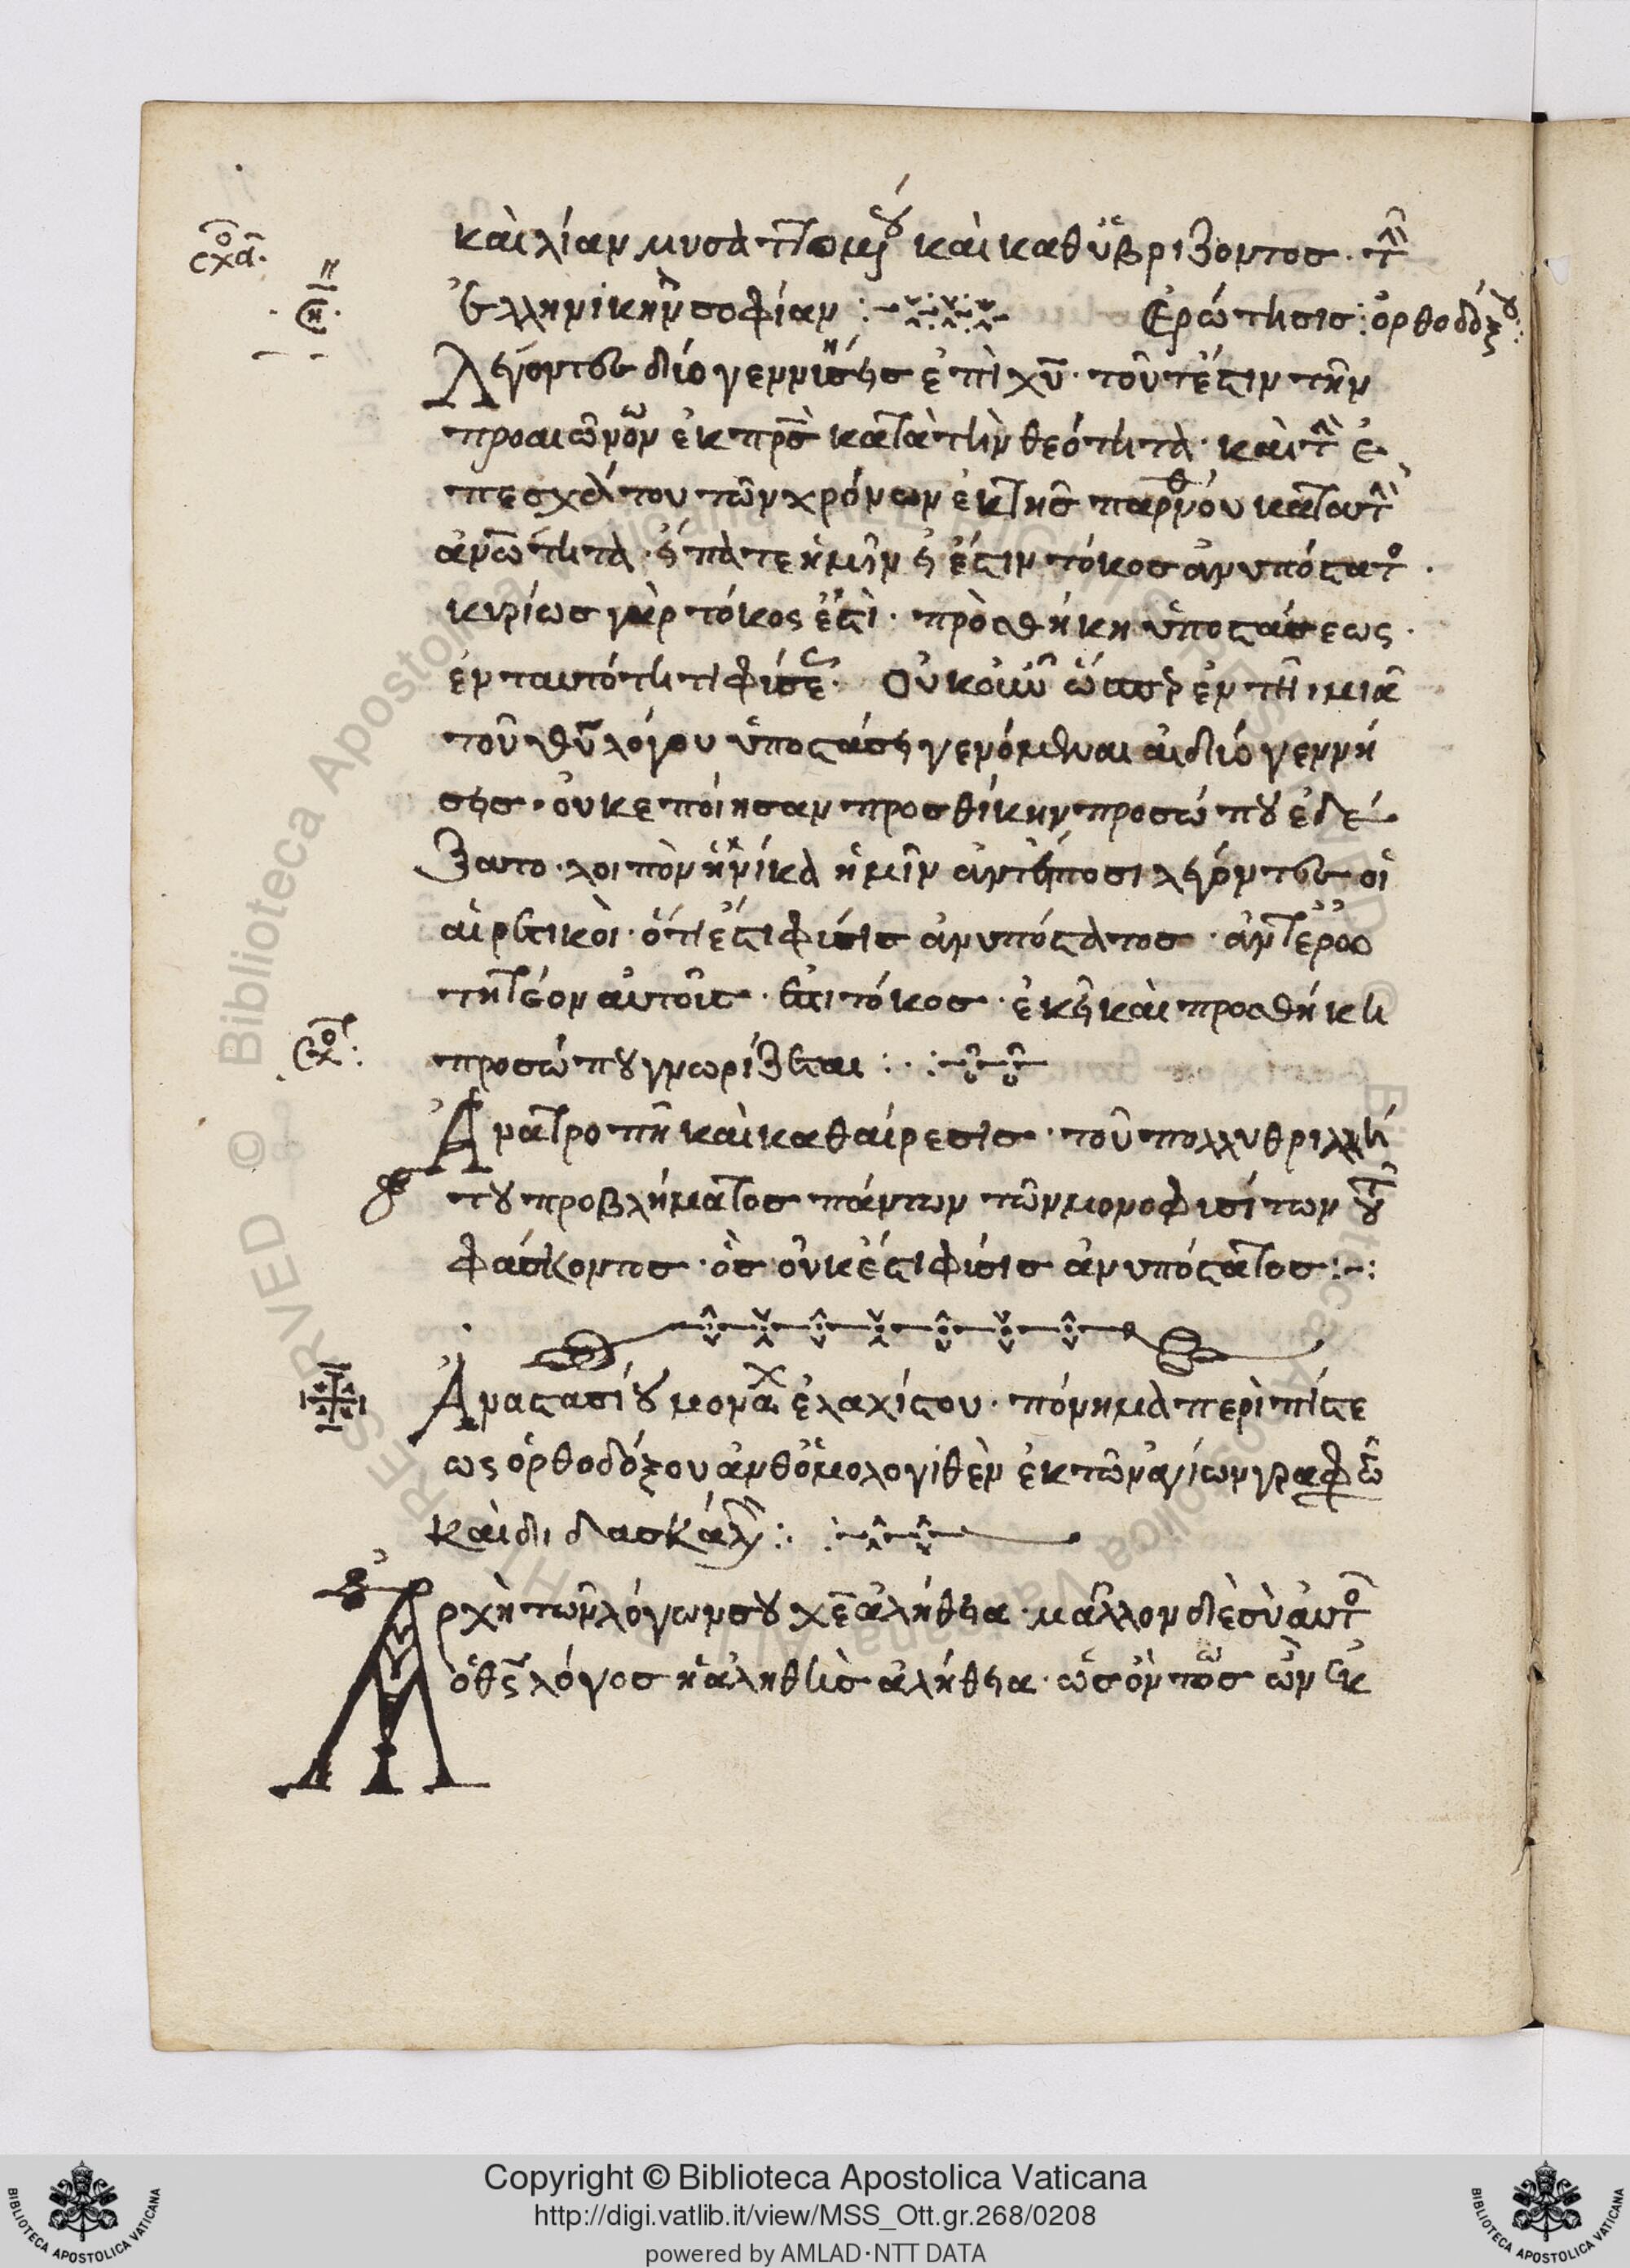 καὶ λίαν μυσαττομένου καὶ καθὑβρίζοντος. τὴν
ἑλληνικὴν σοφίαν :
Ἐρώτησις : ὀρθοδόξου :
Λέγονται δύο γεννήσεις ἐπὶ χυ̅. τοῦτέστιν τὴν
προαιώνιον ἐκ πρς̅ κατὰ τὴν θεότητα. καὶ τὴν ἐ
πεσχάτου τῶν χρόνων ἐκ τῆς παρθένου κατὰ τὴν
ἀνθρωπότητα. εἴπατε ἡμῖν εἰ ἔστιν τόκος ἀνυπόστατος.
κυρίως γὰρ τόκος ἐστὶ. πρὸσθήκη ὑποστάσεως.
ἐν ταυτότητι φύσεως. Οὐκοῦν ὥσπερ ἐν τῆι μιᾶ
τοῦ θυ̅ λόγου ὑποστάσει γενόμεναι αἱ δύο γεννή
σεις. οὐκ εποίησαν προσθήκην προσώπου ἐδέ
ζατο. λοιπὸν ἡνίκα ἡμῖν ἀντείποσι λέγοντες οἱ
αἱρετικοὶ. ὅτι ἔστι φύσις ἀνυπόστατος. ἀντερω
τητέον αὐτοῖς. ὅτι τόκος. ἐκεῖ καὶ προσθήκη
προσώπου γνωρίζεται :
Ἀνατροπὴ καὶ καθαίρεσις. τοῦ πολλυθριλλή
του προβλήματος πάντων τῶν μονοφισίτων τοῦ
φάσκοντος. ὡς οὐκ ἔστι φύσις ἀνυπόστατος :
Ἀναστασίου μοναχ ἐλαχίστου. πόνημα περὶ πίστε
ως ὀρθοδόξου ἀνθὁμολογιθὲν ἐκ τῶν ἁγίων γραφῶν
καὶ διδασκάλων :
Ἀρχὴ τῶν λόγων σου χε̅ ἀλήθεια. μᾶλλον δὲ σὺ αὐτὸς
ὁ θς̅ λόγος ἡ ἀληθὴς ἀλήθεια. ὡς ὄντως ὢν ἐκ
Copyright © Biblioteca Apostolica Vaticana
http://digi.vatlib.it/view/MSS_Ott.gr.268/0208
powered by AMLAD·NTT DATA
BIBLIOTECA APOSTOLICA VATICANA
BIBLIOTECA APOSTOLICA VATICANA